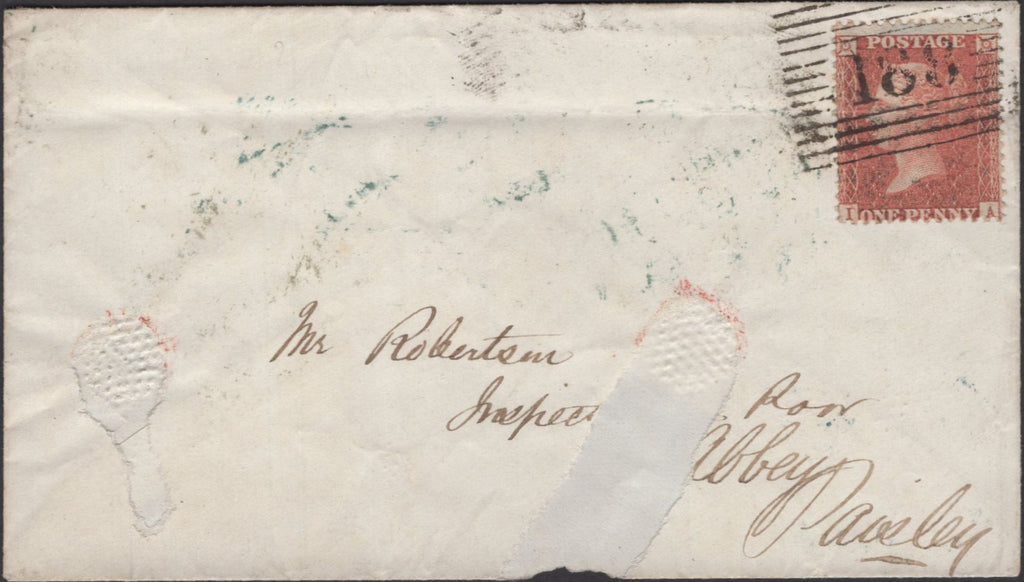 POSTAGE
ONE PENNY
I A
Mr Robertson
Inspec
Poor
Abbey
Paisley